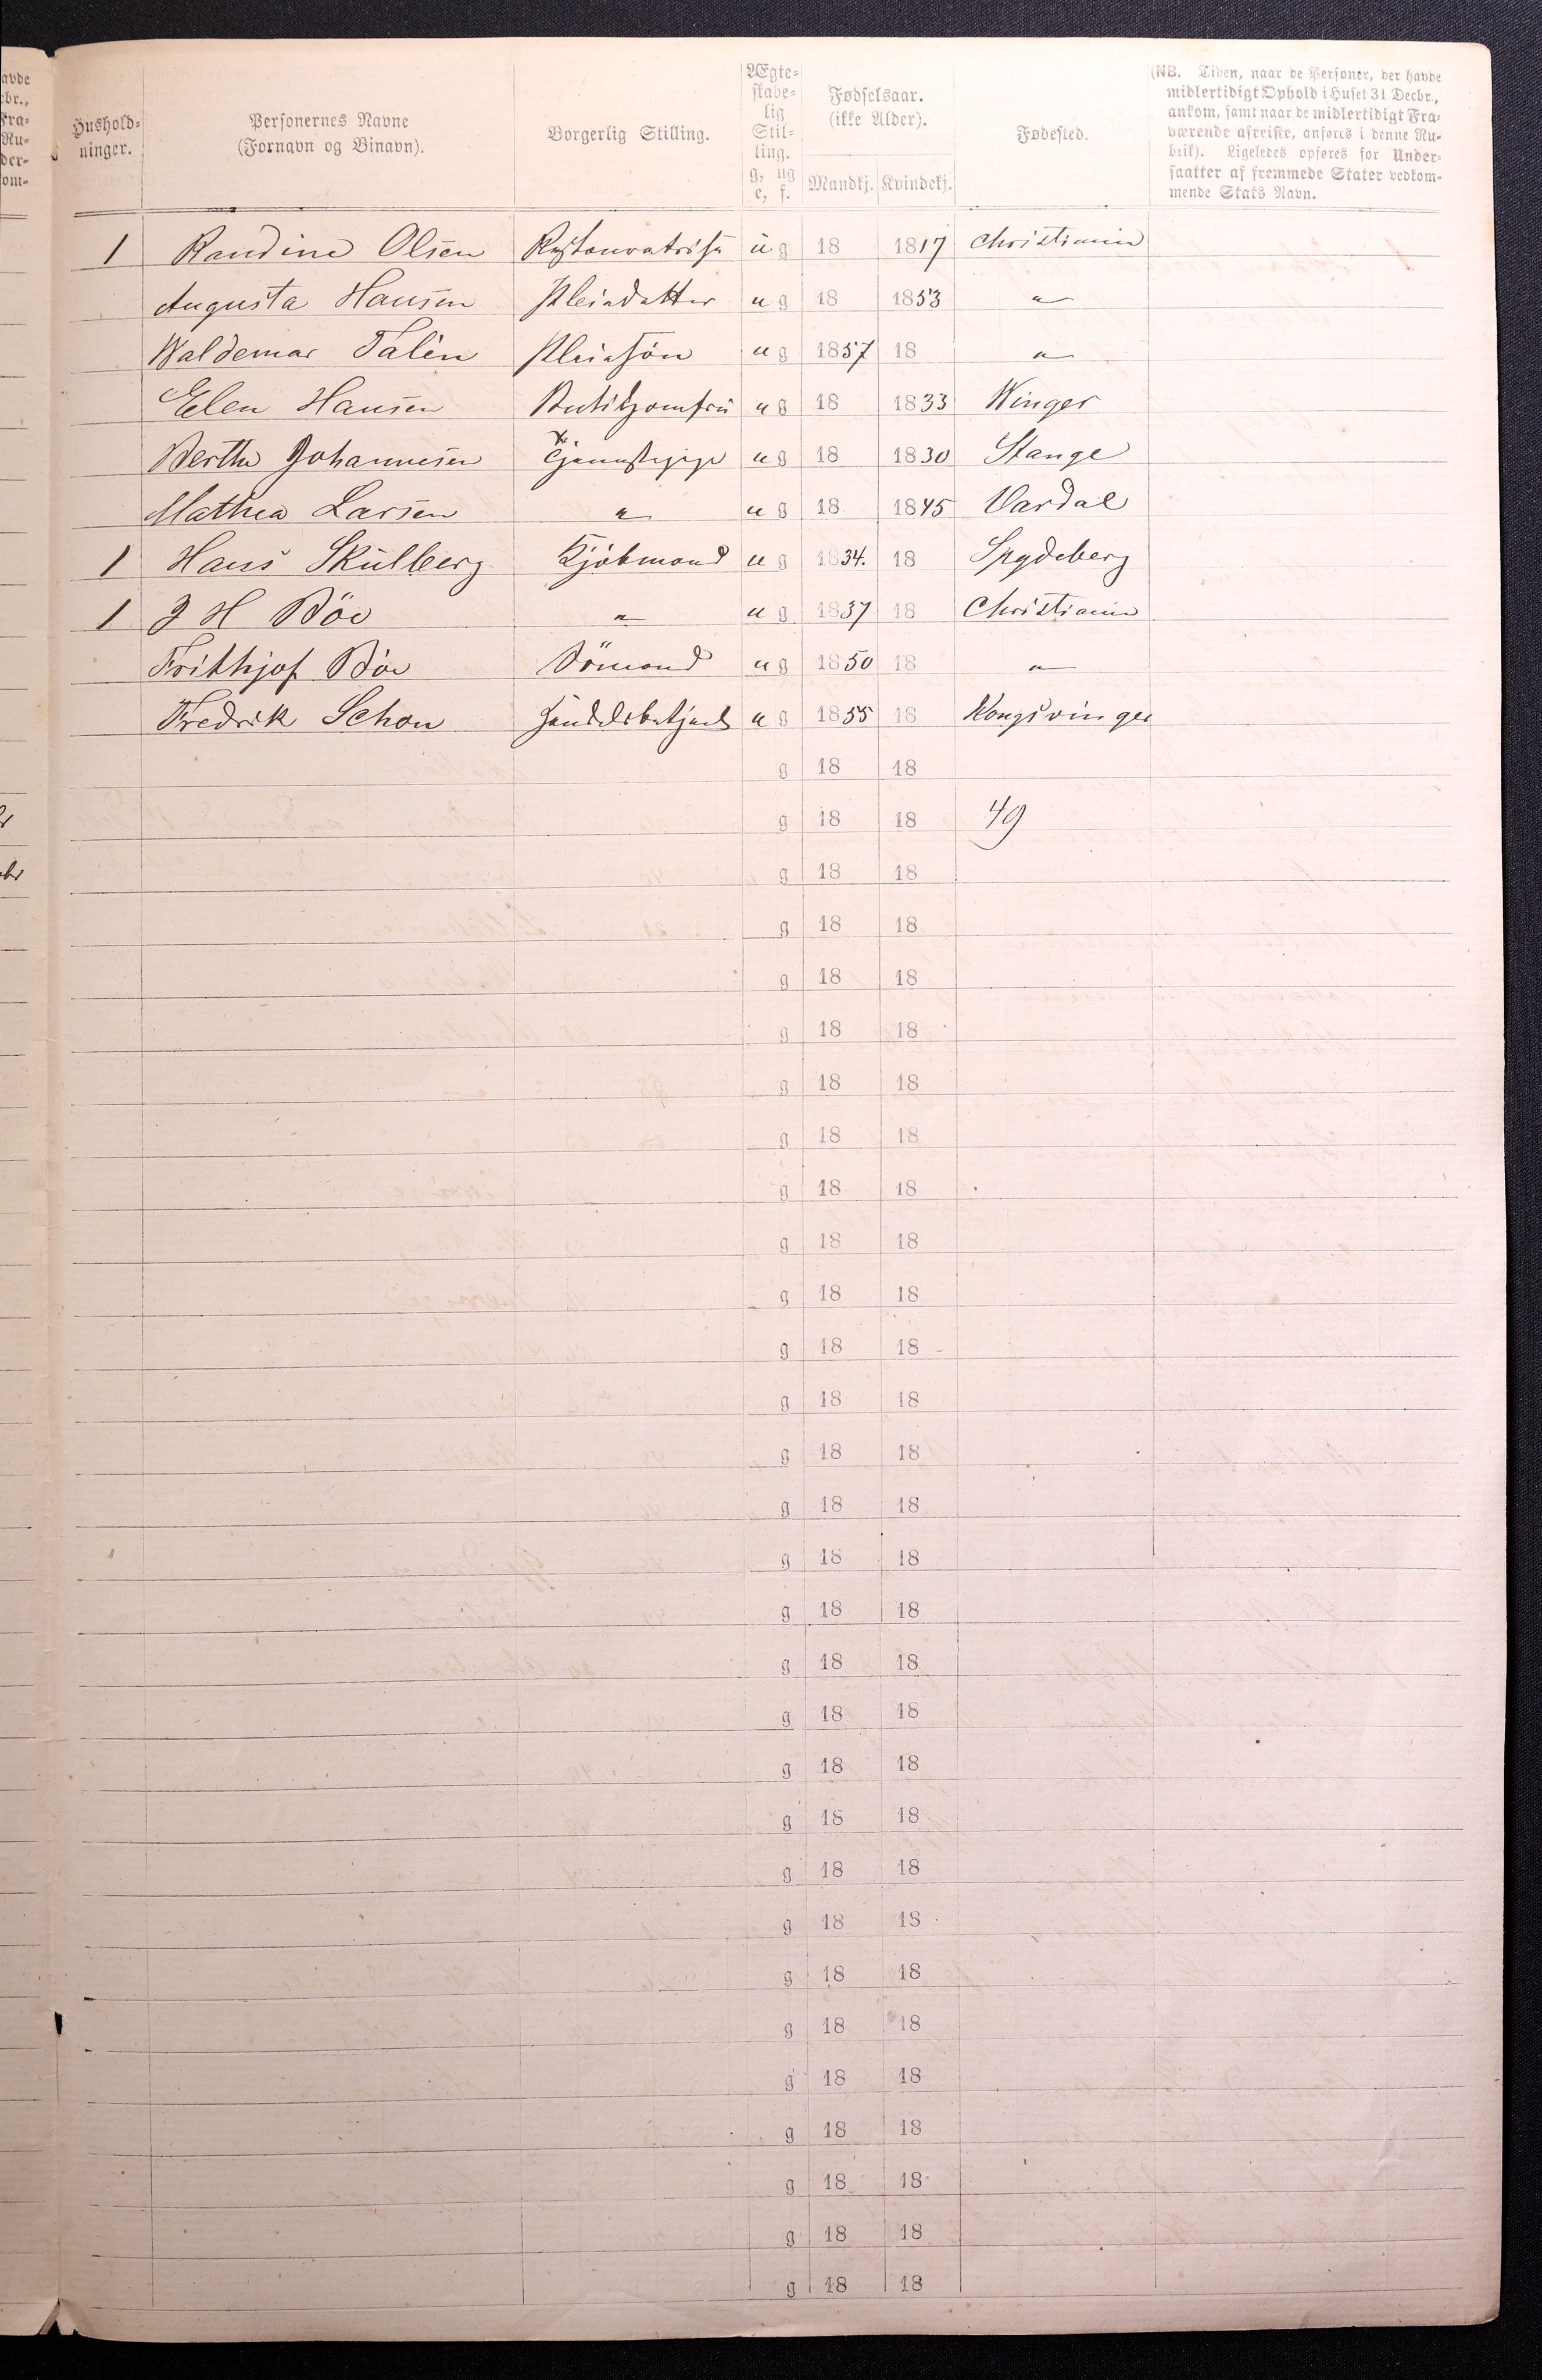 avde
cbr.,
Fra-
Ru-
der-
om-
Hushold-
ninger.
Personernes Navne
(Fornavn og Binavn).
Borgerlig Stilling.
Ægte-
skabe-
lig
Stil-
ling.
g, ug
e, f.
Fødselsaar.
(ikke Alder).
Mandkj. Kvindekj.
Fødested.
(NB. Tiden, naar de Personer, der havde
midlertidigt Ophold i Huset 31 Decbr.,
ankom, samt naar de midlertidigt Fra-
værende afreiste, anføres i denne Ru-
brik). Ligeledes opføres for Under-
saatter af fremmede Stater vedkom-
mende Stats Navn.
1 Randine Olsen ug 18 1817 Christiania
Augusta Hansen Pleiedatter ug 18 1853 "
Waldemar Talén Pleiesön ug 1857 18 "
Elen Hansen Butikjomfru ug 18 1833 Winger
Berthe Johannesen Tjenestepige ug 18 1830 Stange
Mathea Larsen " ug 18 1845 Vardal
1 Hans Skulberg Kjöbmand ug 1834. 18 Spydeberg
1 J H Böe " ug 1837 18 Christiania
Frithjof Böe Sömand ug 1850 18 "
Fredrik Schou Handelsbetjent ug 1855 18 Kongsvinger
g 18 18
g 18 18 49
g 18 18
g 18 18
g 18 18
g 18 18
g 18 18
g 18 18
g 18 18
g 18 18
g 18 18
g 18 18
g 18 18
g 18 18
g 18 18
g 18 18
g 18 18
g 18 18
g 18 18
g 18 18
g 18 18
g 18 18
g 18 18
g 18 18
g 18 18
g 18 18
g 18 18
g 18 18
g 18 18
g 18 18